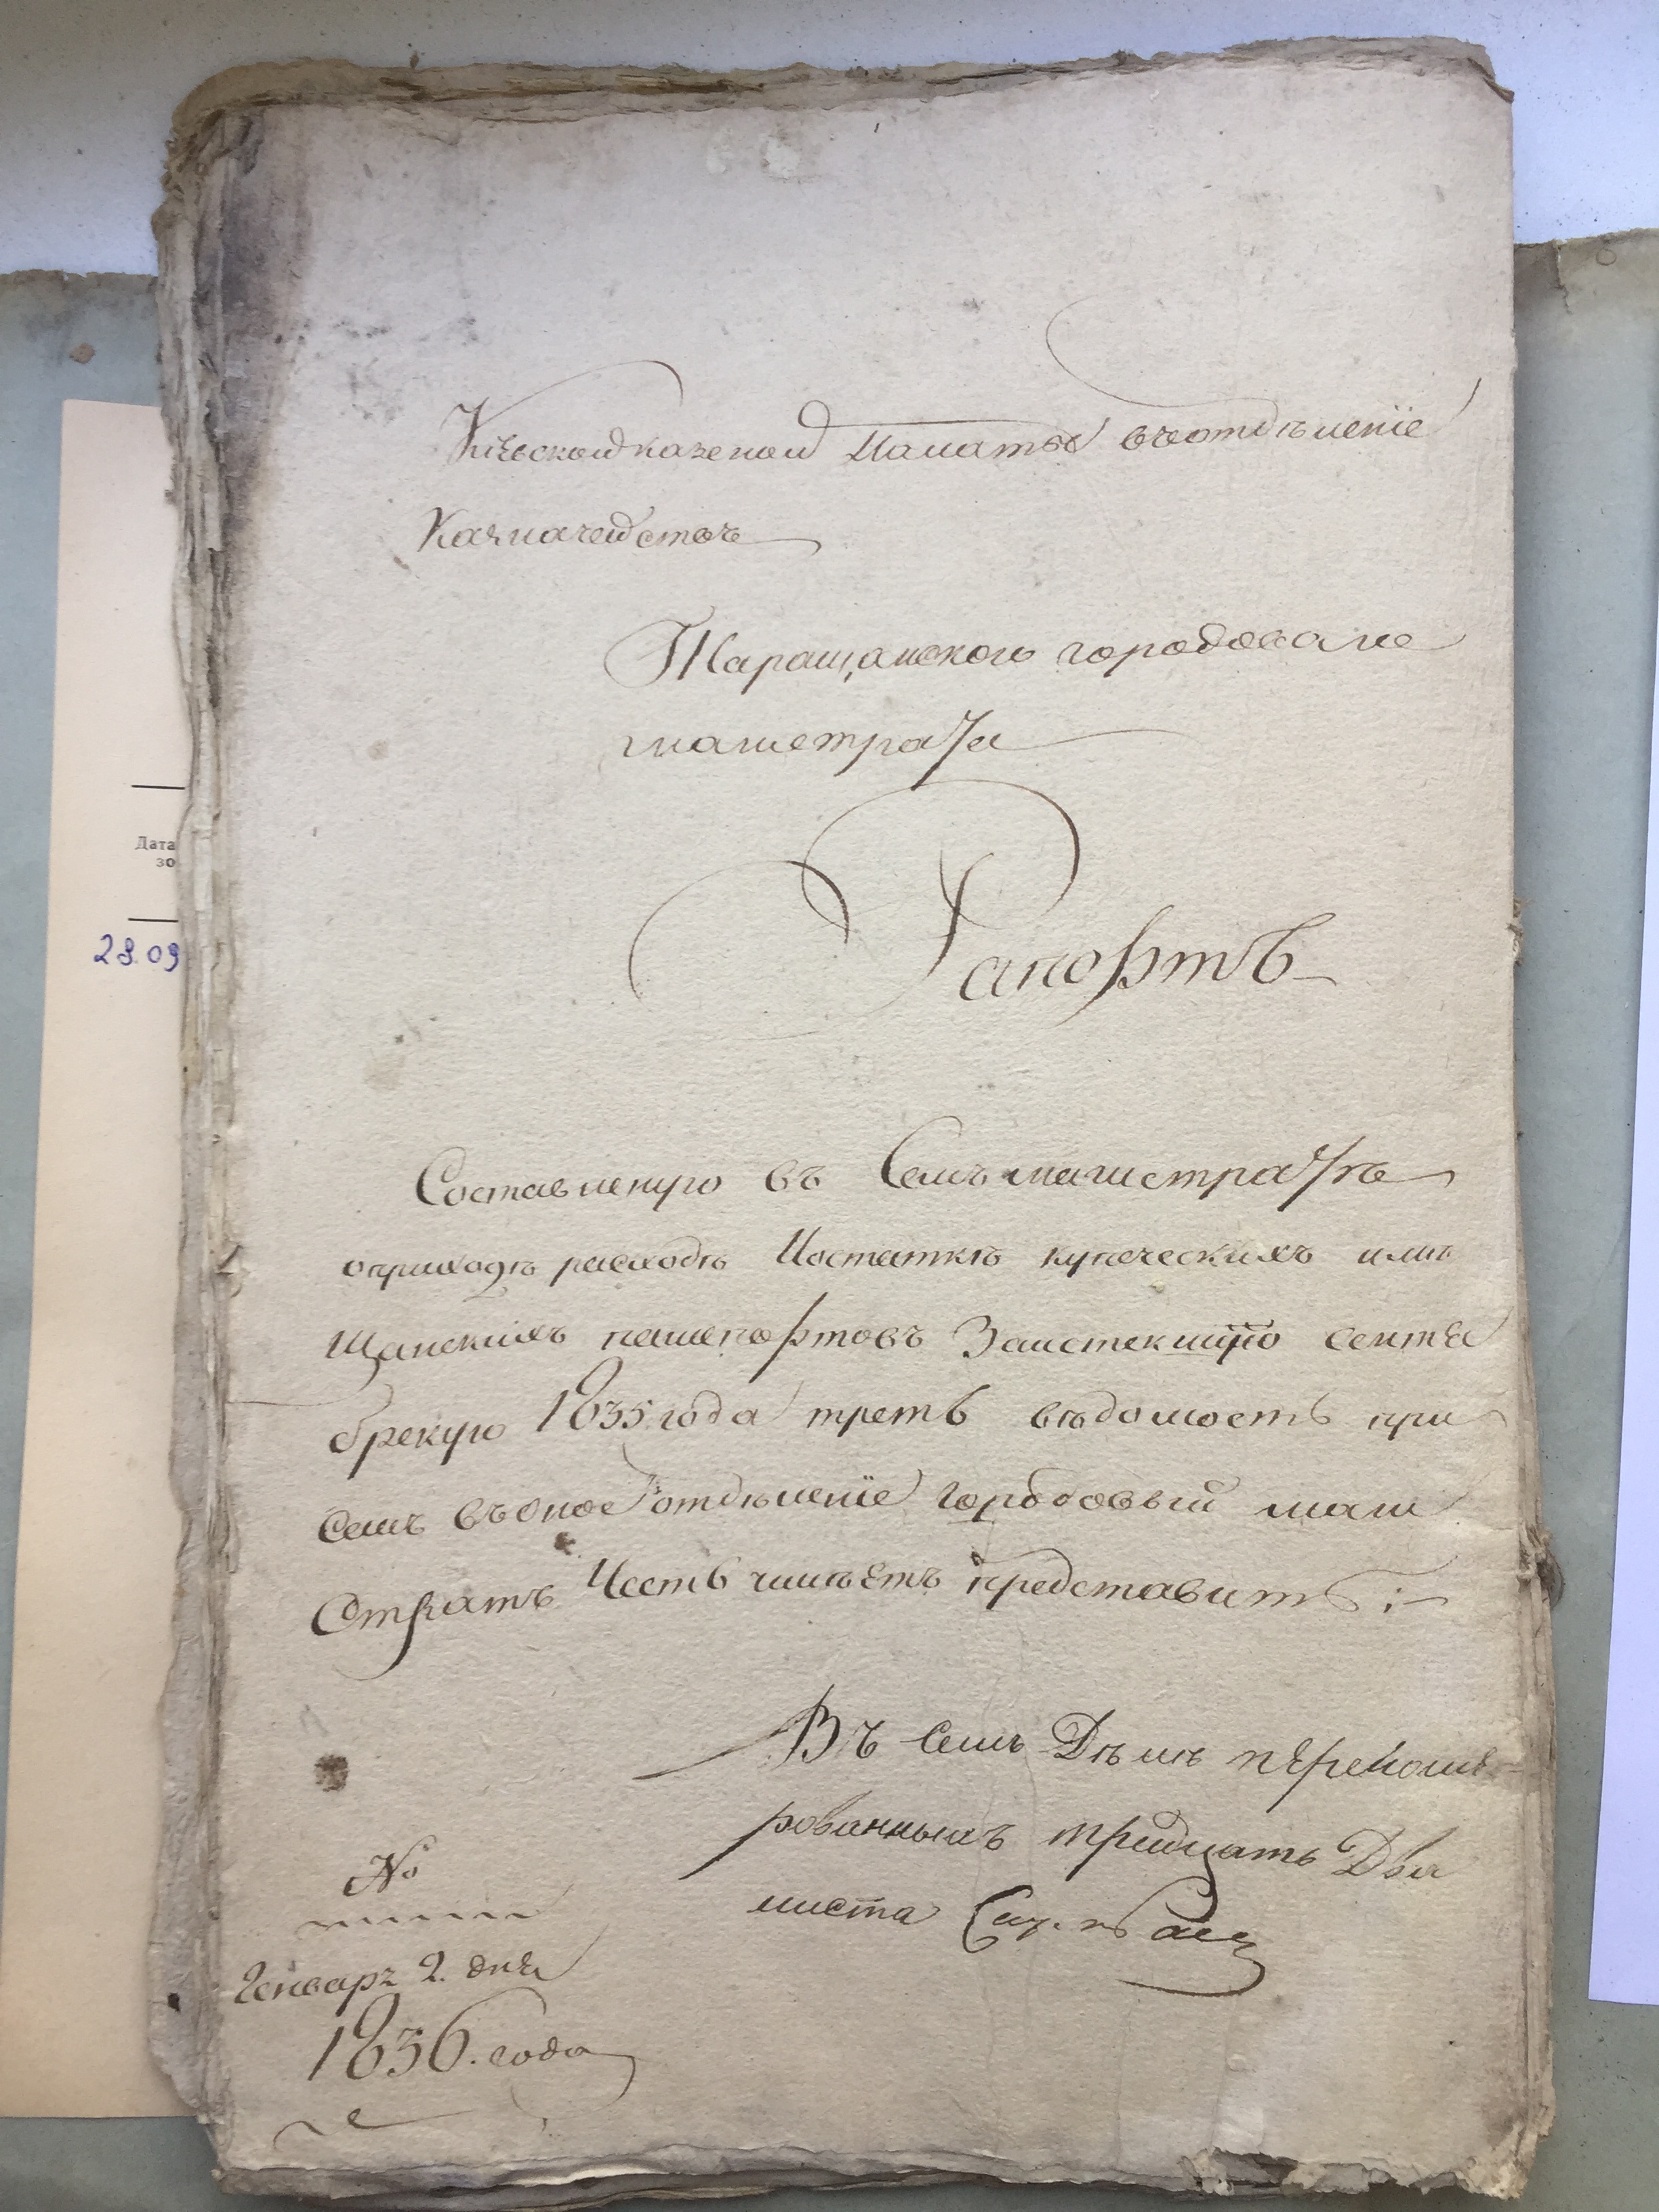 Кіевской казеной Палаты въ отделеніе
Казначейства
Таращанского городоваго
магистрата
Рапортъ
Составленую въ Семъ магистратъ
о приходъ расходъ И остаткъ купеческихъ и мъ
щанскихъ пашпортовъ За истекшую сентя
брскую 1835 года треть въдомость при
Семъ въ оное отдъленіе городовый маги
Стратъ Честь имъетъ представить:—
Въ семъ Дълъ перенуме-
рованныхъ тридцать два
листа
№
Генваря 2. дня
1836. года
Дата
зо
28.09